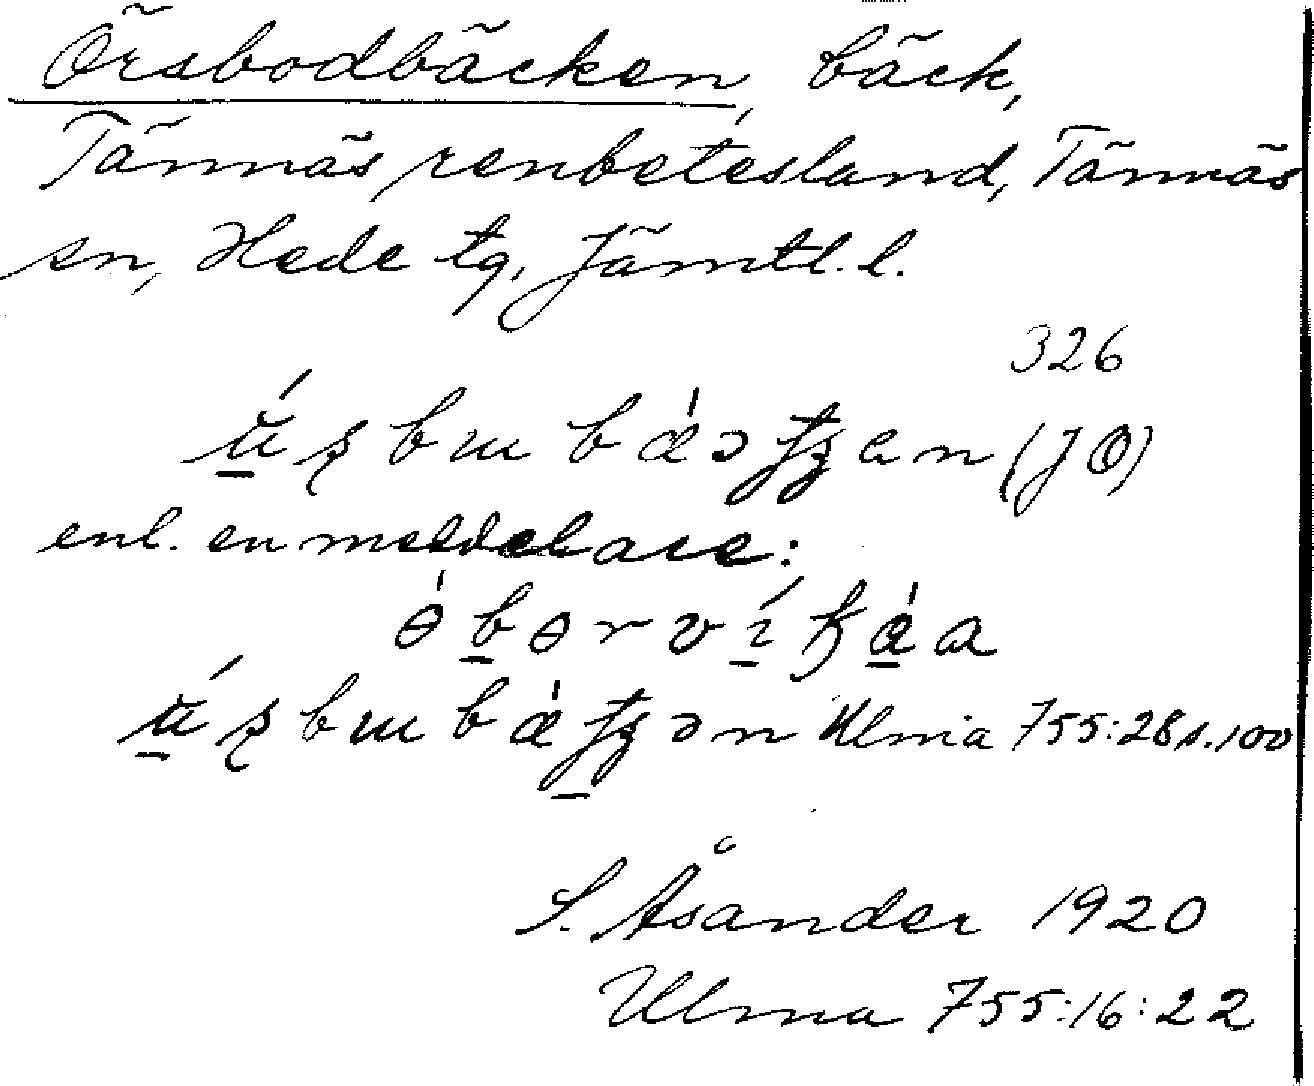 Örsbodbäcken, bäck,
Tännäs renbetesland, Tännäs
sn, Hede tg, Jämtl. l.
326
(JÖ)
enl. en meddelare:
Ulma 755:28 s. 100
S. Åsander 1920
Ulma 755:16:22